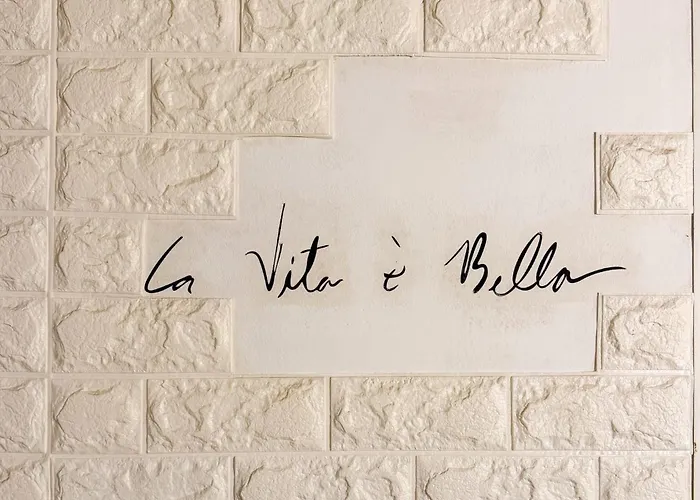 La Vita è Bella